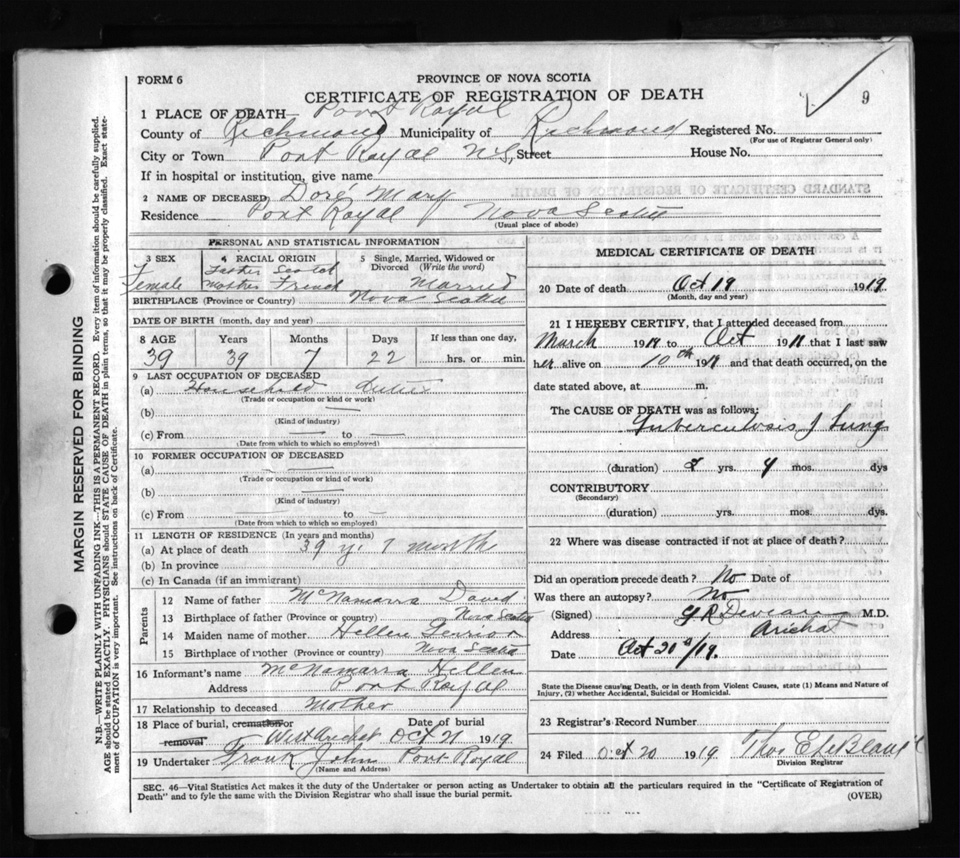 FORM 6
PROVINCE OF NOVA SCOTIA
CERTIFICATE OF REGISTRATION OF DEATH
9
1 PLACE OF DEATH Port Royal
County of Richmond Municipality of Richmond Registered No.
(For use of Registrar General only)
City or Town Port Royal N.S. Street House No.
If in hospital or institution, give name
2 NAME OF DECEASED Doré Mary
Residence Port Royal Nova Scotia
(Usual place of abode)
PERSONAL AND STATISTICAL INFORMATION
3 SEX 4 RACIAL ORIGIN 5 Single, Married, Widowed or Divorced (Write the word)
Female Father Scotch Mother French Married
BIRTHPLACE (Province or Country) Nova Scotia
DATE OF BIRTH (month, day and year)
8 AGE Years Months Days If less than one day,
39 39 7 22 hrs. or min.
9 LAST OCCUPATION OF DECEASED
(a) Household duties
(Trade or occupation or kind or work)
(b)
(Kind of industry)
(c) From — to —
(Date from which to which so employed)
10 FORMER OCCUPATION OF DECEASED
(a) —
(Trade or occupation or kind of work)
(b) —
(Kind of industry)
(c) From — to —
(Date from which to which so employed)
11 LENGTH OF RESIDENCE (In years and months)
(a) At place of death 39 y. 7 month
(b) In province
(c) In Canada (if an immigrant)
Parents
12 Name of father McNamarra David
13 Birthplace of father (Province or country) Nova Scotia
14 Maiden name of mother Hellen
15 Birthplace of mother (Province or country) Nova Scotia
16 Informant's name McNamarra Hellen
Address Port Royal
17 Relationship to deceased Mother
18 Place of burial, cremation or removal West Arichat Date of burial Oct 21 1919
19 Undertaker Frank John Port Royal
(Name and Address)
MEDICAL CERTIFICATE OF DEATH
20 Date of death Oct 19 1919
(Month, day and year)
21 I HEREBY CERTIFY, that I attended deceased from
March 19 to Oct 19 that I last saw
her alive on 10th 19 and that death occurred, on the
date stated above, at m.
The CAUSE OF DEATH was as follows:
Tuberculosis of Lung
(duration) yrs. 4 mos. dys
CONTRIBUTORY
(Secondary)
(duration) yrs. mos. dys.
22 Where was disease contracted if not at place of death?
Did an operation precede death? No Date of
Was there an autopsy? No
(Signed) M.D.
Address Arichat
Date Oct 20/19.
State the Disease causing Death, or in death from Violent Causes, state (1) Means and Nature of
Injury, (2) whether Accidental, Suicidal or Homicidal.
23 Registrar's Record Number
24 Filed Oct 20 1919 Thos E LeBlanc
Division Registrar
SEC. 46—Vital Statistics Act makes it the duty of the Undertaker or person acting as Undertaker to obtain all the particulars required in the "Certificate of Registration of
Death" and to fyle the same with the Division Registrar who shall issue the burial permit.
(OVER)
MARGIN RESERVED FOR BINDING
N.B.—WRITE PLAINLY WITH UNFADING INK—THIS IS A PERMANENT RECORD. Every item of information should be carefully supplied.
AGE should be stated EXACTLY. PHYSICIANS should STATE CAUSE OF DEATH in plain terms, so that it may be properly classified. Exact state-
ment of OCCUPATION is very important. See instructions on back of Certificate.